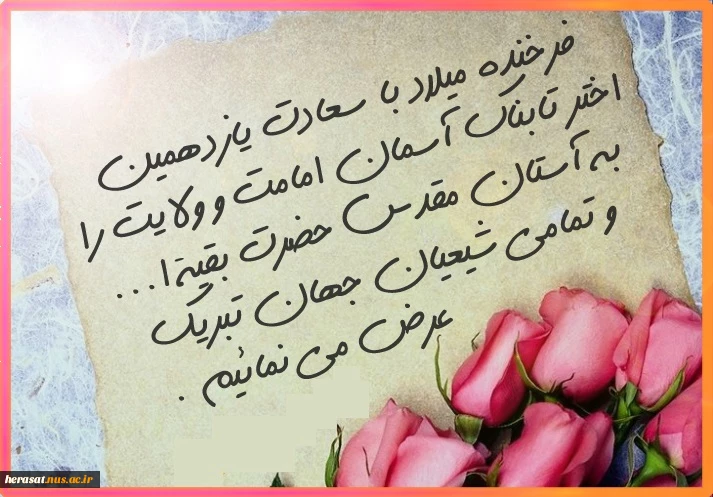 فرخنده میلاد با سعادت یازدهمین
اختر تابناک آسمان امامت و ولایت را
به آستان مقدس حضرت بقیة ا...
و تمامی شیعیان جهان تبریک
عرض می نمائیم .
herasat.nus.ac.ir